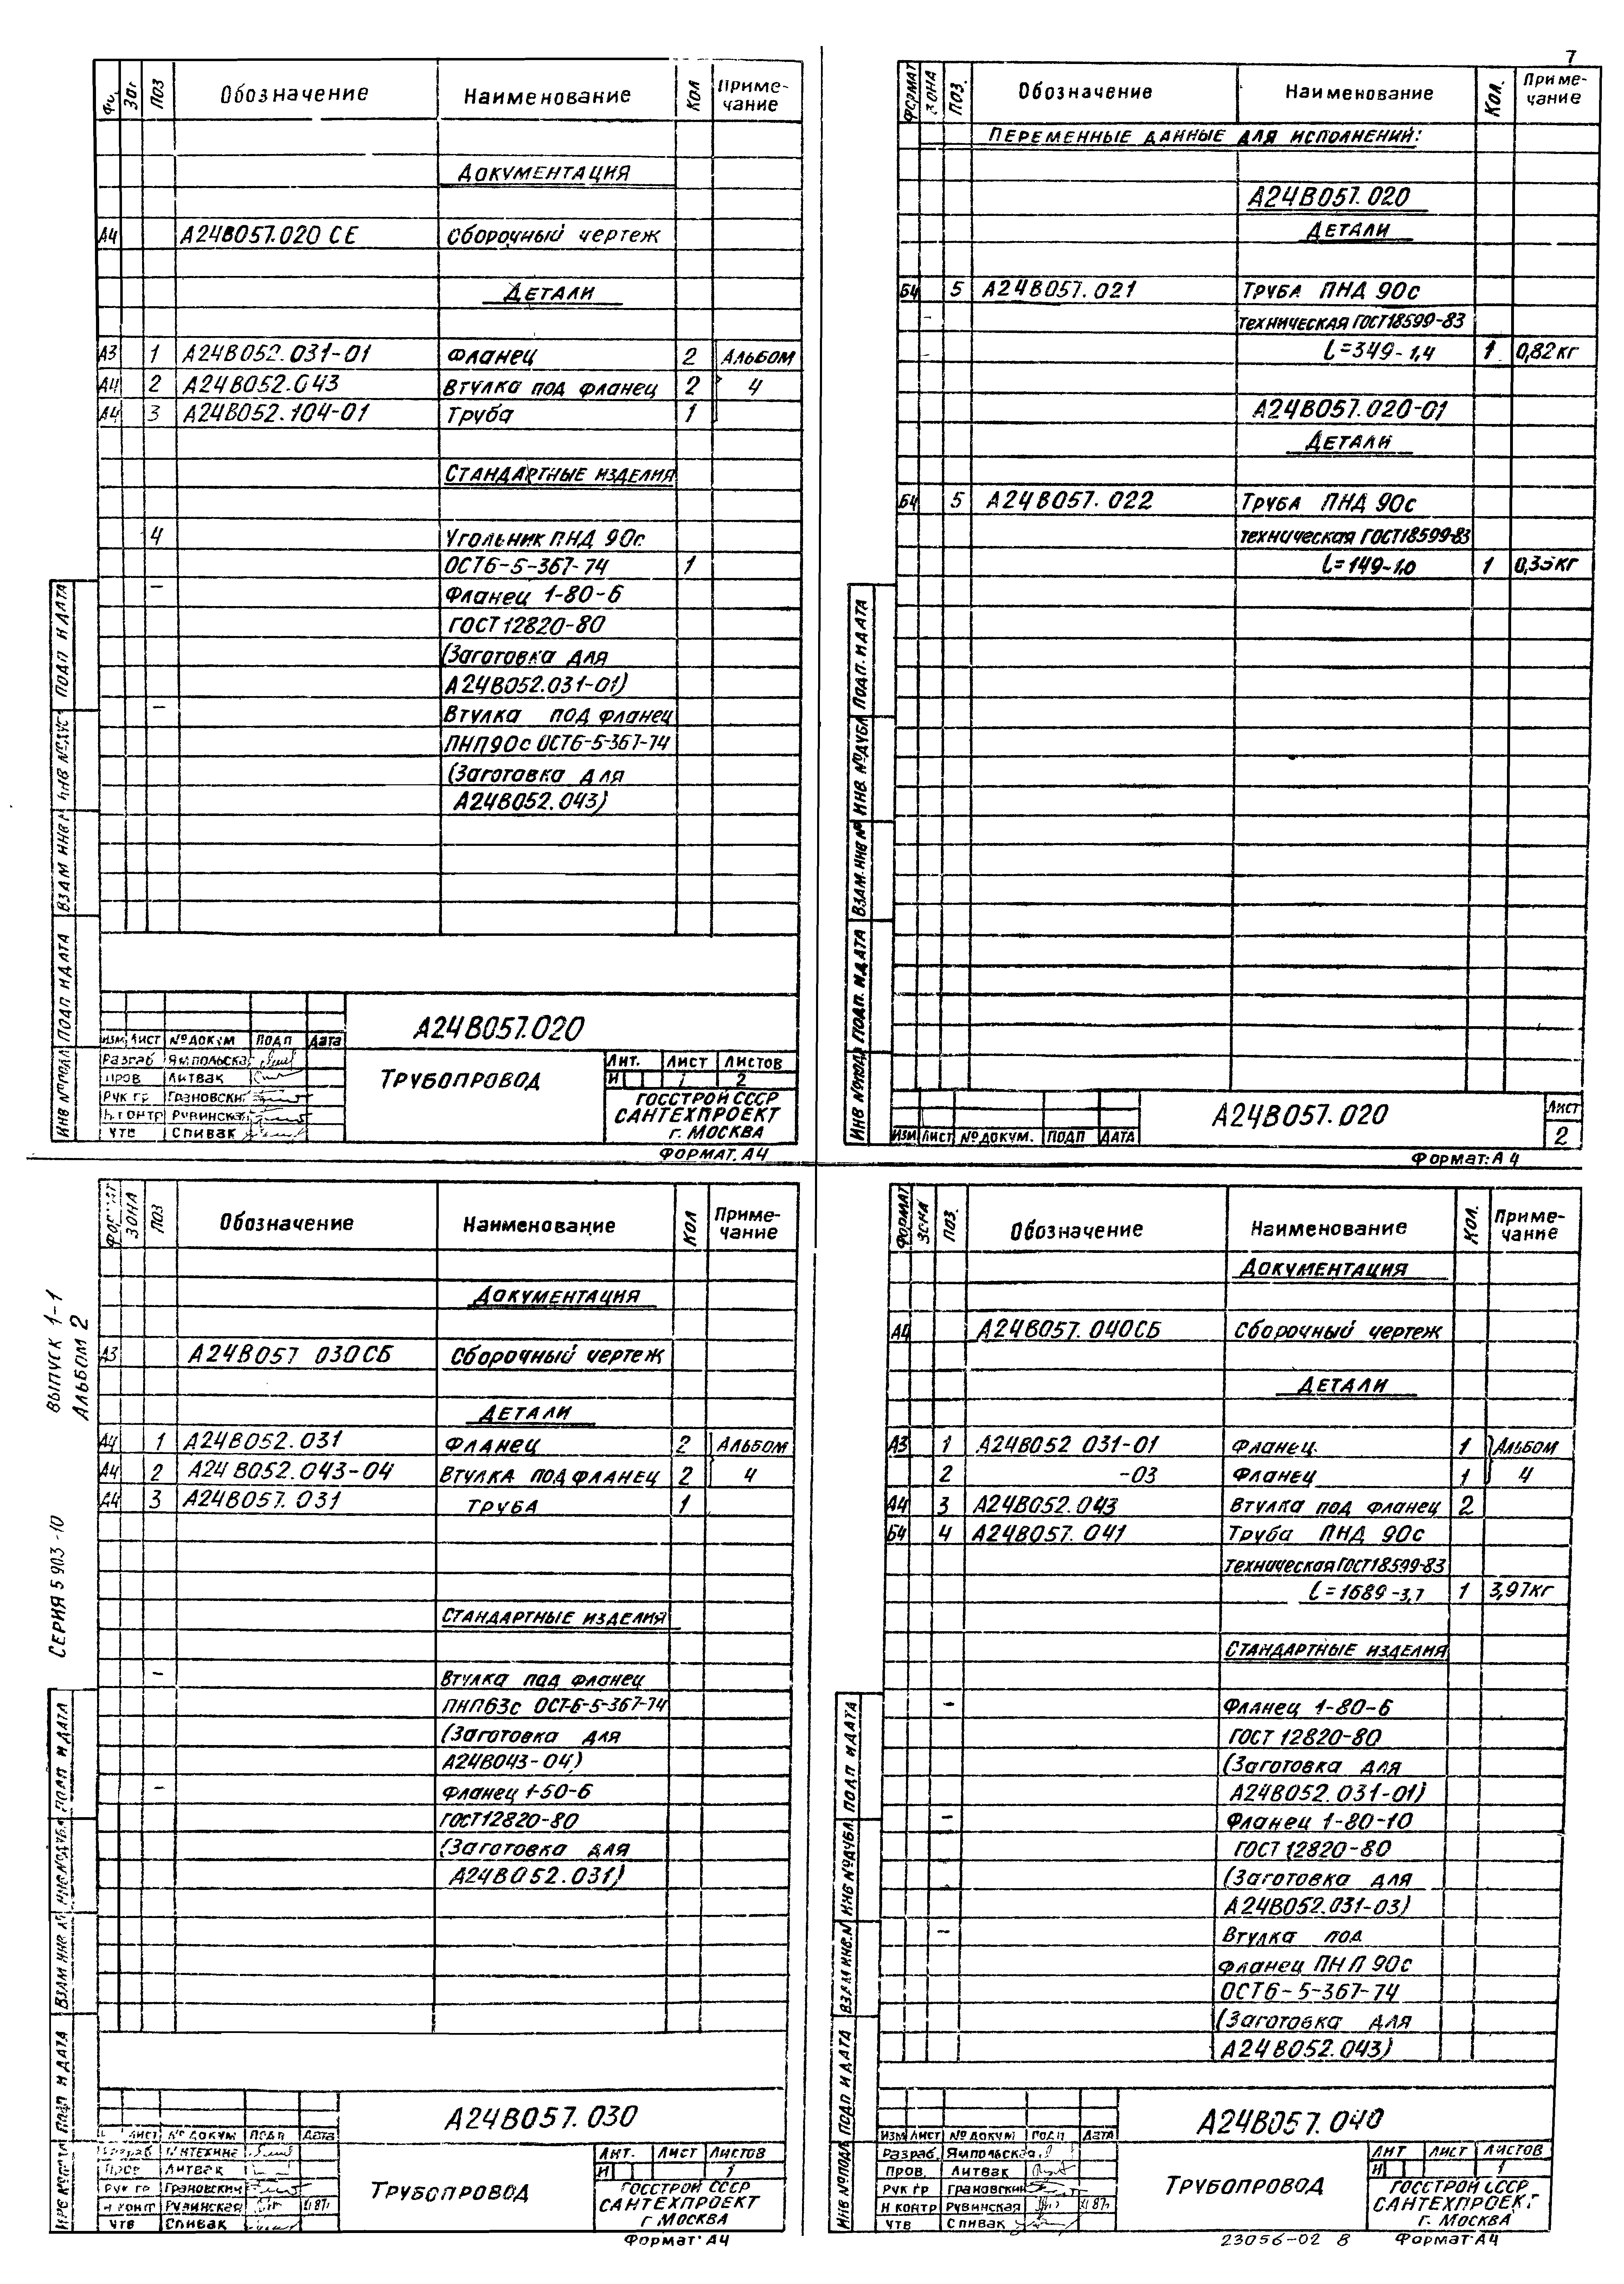 7
Фо. Зог. ПОЗ Обозначение Наименование КОЛ Приме-
чание
ДОКУМЕНТАЦИЯ
А4 А24В057.020 СЕ Сборочный чертеж
ДЕТАЛИ
А3 1 А24В052.031-01 Фланец 2 АЛЬБОМ
А4 2 А24В052.043 Втулка под фланец 2 4
А4 3 А24В052.104-01 Труба 1
СТАНДАРТНЫЕ ИЗДЕЛИЯ
4 Угольник ПНД 90с
ОСТ6-5-367-74 1
– Фланец 1-80-6
ГОСТ 12820-80
(Заготовка для
А24В052.031-01)
– Втулка под фланец
ПНП90с ОСТ6-5-367-74
(Заготовка для
А24В052.043)
ПОДП И ДАТА
ВЗАМ ИНВ №
ПОДП И ДАТА
ИНВ № ПОДЛ
А24В057.020
ИЗМ ЛИСТ № ДОКУМ ПОДП Дата
Разраб Ямпольска
Пров Литвак
Рук гр Грановски
Н контр Рувинска
Утв Спивак
ТРУБОПРОВОД
ЛИТ. ЛИСТ ЛИСТОВ
И 1 2
ГОССТРОЙ СССР
САНТЕХПРОЕКТ
г. МОСКВА
ФОРМАТ. А4
ФОРМАТ ЗОНА ПОЗ. Обозначение Наименование КОЛ. Приме-
чание
ПЕРЕМЕННЫЕ ДАННЫЕ ДЛЯ ИСПОЛНЕНИЙ:
А24В057.020
ДЕТАЛИ
Б4 5 А24В057.021 ТРУБА ПНД 90с
техническая ГОСТ18599-83
l=349-1,4 1 0,82 кг
А24В057.020-01
ДЕТАЛИ
Б4 5 А24В057.022 ТРУБА ПНД 90с
техническая ГОСТ18599-83
l=149-1,0 1 0,35 кг
ПОДП. И ДАТА
ИНВ. № ДУБЛ
ВЗАМ. ИНВ №
ПОДП. И ДАТА
ИНВ № ПОДЛ
ИЗМ ЛИСТ № ДОКУМ. ПОДП ДАТА
А24В057.020
ЛИСТ
2
Формат: А4
ВЫПУСК 1-1
АЛЬБОМ 2
СЕРИЯ 5 903-10
ФОРМАТ ЗОНА ПОЗ Обозначение Наименование КОЛ Приме-
чание
ДОКУМЕНТАЦИЯ
А3 А24В057 030СБ Сборочный чертеж
ДЕТАЛИ
А4 1 А24В052.031 ФЛАНЕЦ 2 АЛЬБОМ
А4 2 А24В052.043-04 ВТУЛКА ПОД ФЛАНЕЦ 2 4
А4 3 А24В057.031 ТРУБА 1
СТАНДАРТНЫЕ ИЗДЕЛИЯ
– Втулка под фланец
ПНП63с ОСТ-6-5-367-74
(Заготовка для
А24В043-04)
– Фланец 1-50-6
ГОСТ12820-80
(Заготовка для
А24В052.031)
ПОДП И ДАТА
ВЗАМ ИНВ №
ПОДП И ДАТА
А24В057.030
ЛИСТ № ДОКУМ ПОДП Дата
Пров Литвак
Рук гр Грановский
Н контр Рувинская 87г
Утв Спивак
ТРУБОПРОВОД
ЛИТ. ЛИСТ ЛИСТОВ
И 1
ГОССТРОЙ СССР
САНТЕХПРОЕКТ
г МОСКВА
Формат А4
ФОРМАТ ЗОНА ПОЗ. Обозначение Наименование КОЛ. Приме-
чание
ДОКУМЕНТАЦИЯ
А4 А24В057.040СБ Сборочный чертеж
ДЕТАЛИ
А3 1 А24В052 031-01 Фланец 1 АЛЬБОМ
2 -03 Фланец 1 4
А4 3 А24В052.043 Втулка под фланец 2
Б4 4 А24В057.041 Труба ПНД 90с
техническая ГОСТ18599-83
l=1689-3,7 1 3,97кг
СТАНДАРТНЫЕ ИЗДЕЛИЯ
– Фланец 1-80-6
ГОСТ 12820-80
(Заготовка для
А24В052.031-01)
– Фланец 1-80-10
ГОСТ 12820-80
(Заготовка для
А24В052.031-03)
– Втулка под
фланец ПНП 90с
ОСТ6-5-367-74
(Заготовка для
А24В052.043)
ПОДП И ДАТА
ИНВ № ДУБЛ
ВЗАМ ИНВ. №
ПОДП И ДАТА
ИНВ № ПОДЛ
А24В057.040
ИЗМ ЛИСТ № ДОКУМ ПОДП ДАТА
Разраб. Ямпольская
Пров. Литвак
Рук гр Грановский
Н контр Рувинская 87г
Утв Спивак
ТРУБОПРОВОД
ЛИТ ЛИСТ ЛИСТОВ
И 1
ГОССТРОЙ СССР
САНТЕХПРОЕКТ
г. МОСКВА
23056-02 8 Формат А4